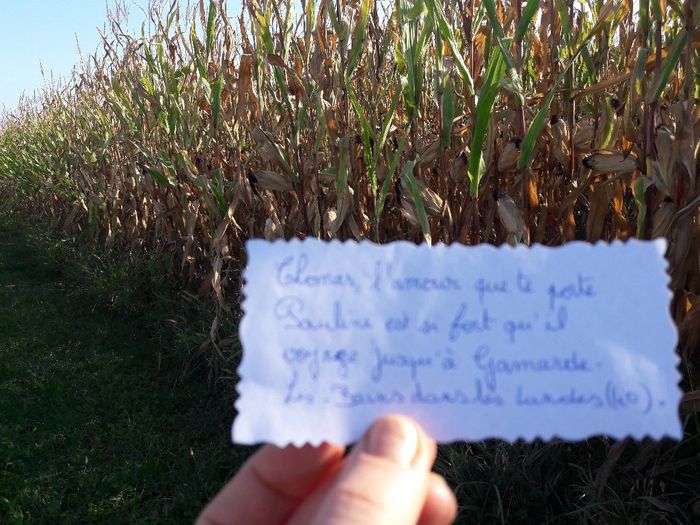 Thomas, l'amour que te porte
Pauline est si fort qu'il
voyage jusqu'à Gamarde-
les-Bains dans les Landes (40).